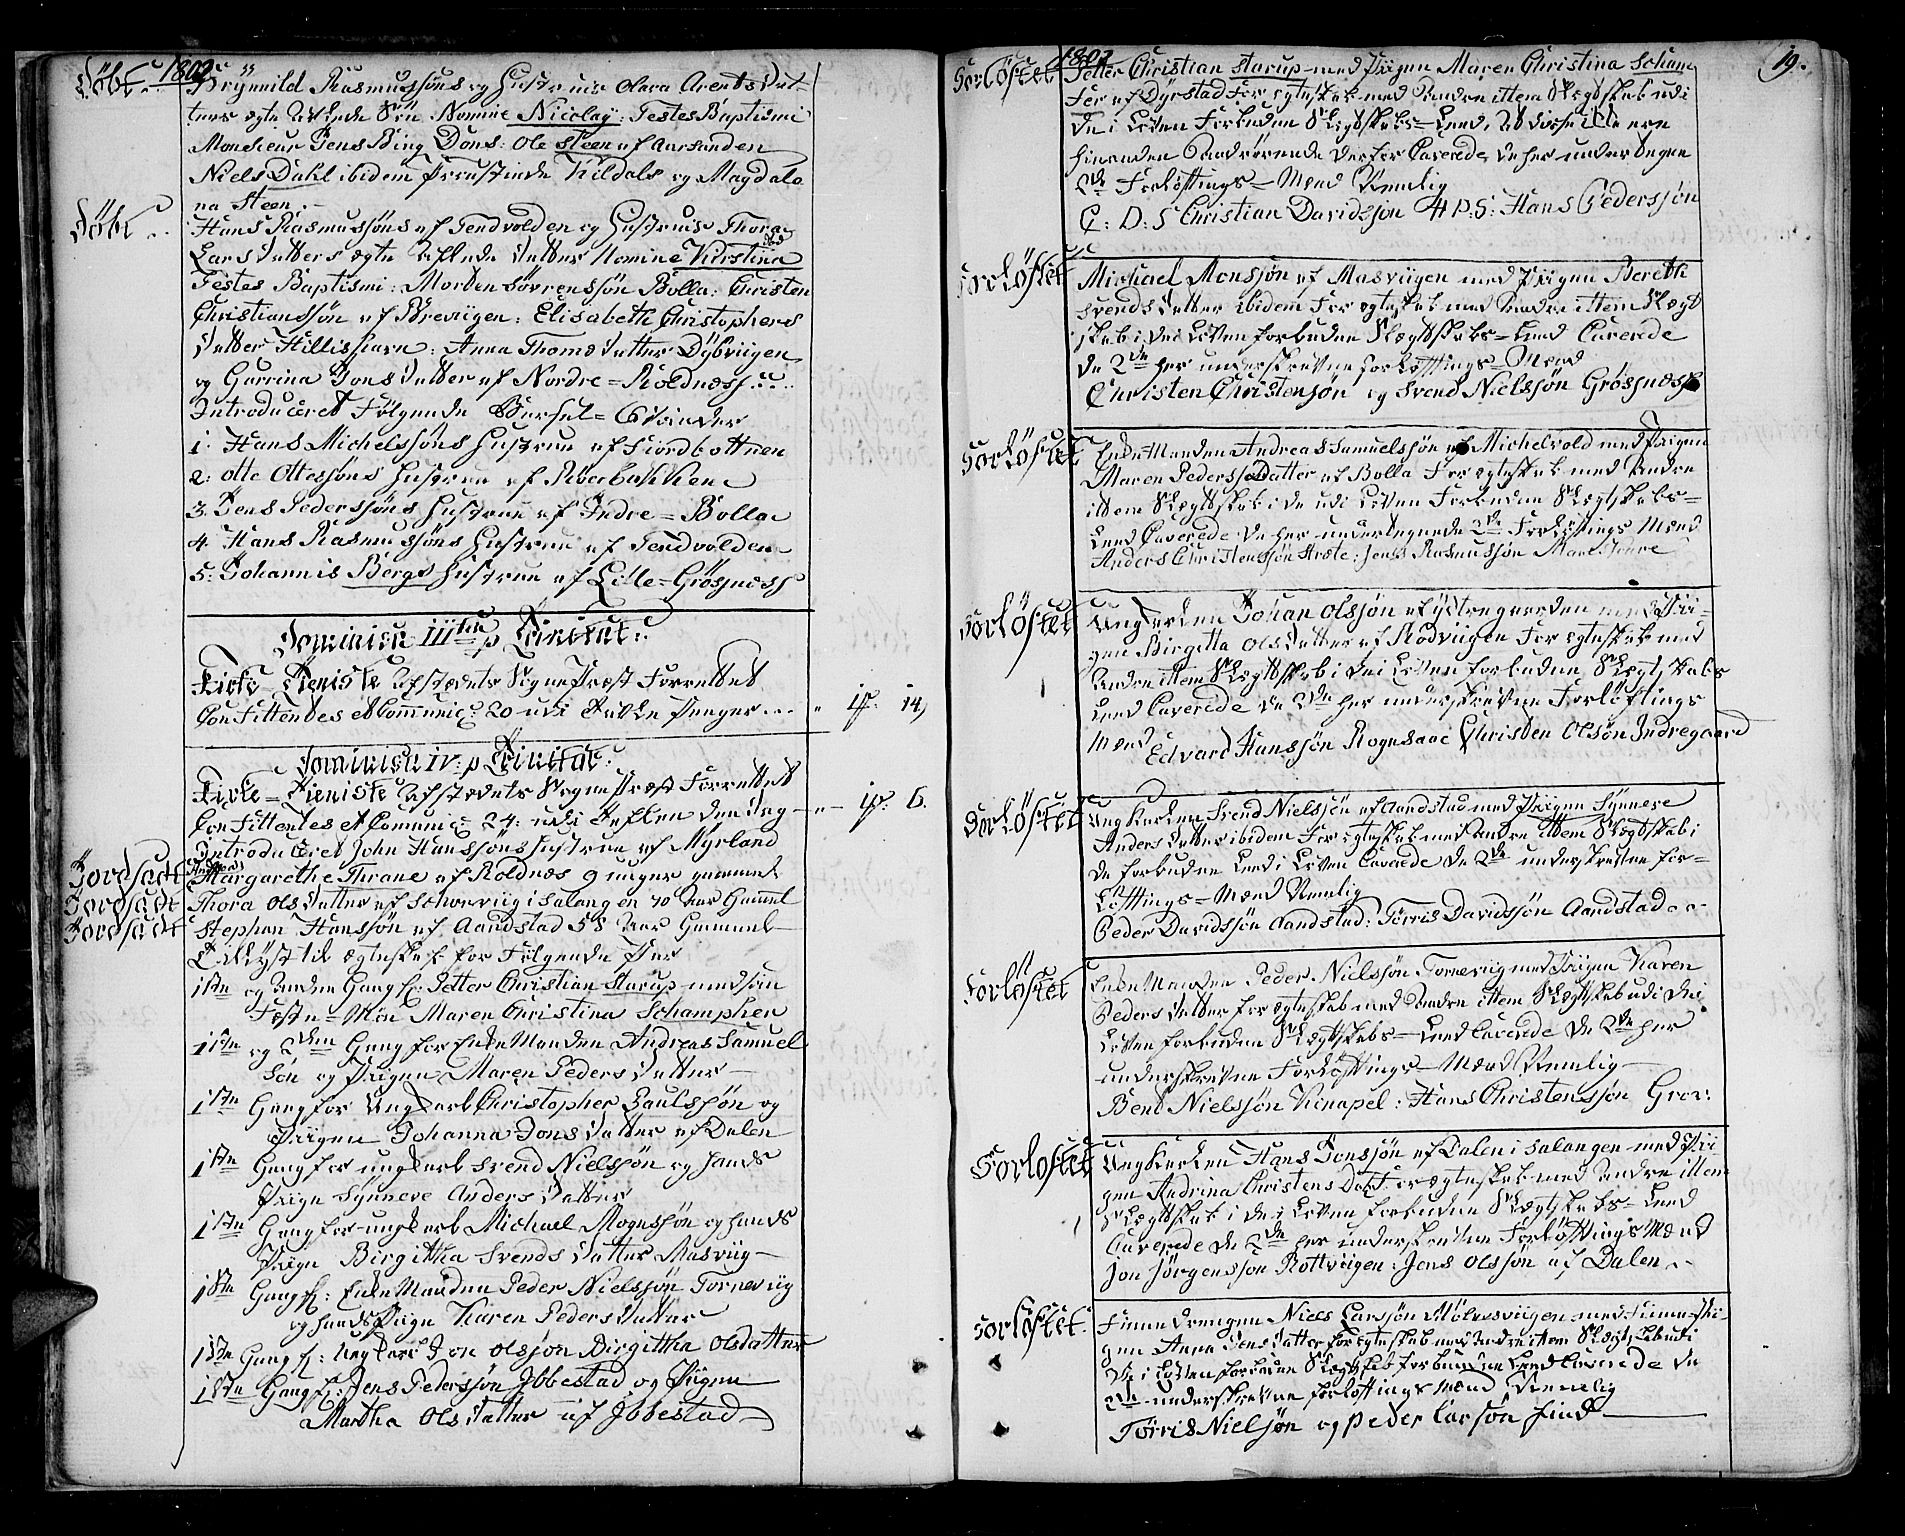 Döbt. 1802
Brynnild Rasmussøns og Hustrues Olava Arents Dat-
ters ægte avlede Søn Nomine Nicolay: Testes Baptismi
Monsieur Jens Bing Dons: Ole Steen af Aarsanden
Niels Dahl ibidem Kildals og Magdale
na Steen.
Döbt
Hans Rasmussøns af Tendvolden og Hustrues Thora
Lars Datters ægte avlede Datter Nomine Kirstina
Testes Baptismi: Morten Sövrenssön Bolla: Christen
Christianssön af Breviigen: Elisabeth Christophers
Datter Hillishavn: Anna Thoms Datter Dybviigen
og Gurrina Jons Datter af Nordre-Roldnæss
Introduceret Følgende Barsel-Qvinder
1. Hans Michelssöns Hustrue af Fiordbottnen
2. Otte Ottessöns Hustrue af Röerbakken
3. Jens Pederssöns Hustrue af Indre-Bolla
4. Hans Rasmussöns Hustrue af Tendvolden
5. Johannis Bergs Hustrue af Lille-Grösnæss
Dominica IIItia p Trinitat:
Kirke Tieniste Afstædets Sognepræst Forrettet
Confittentes et Communic: 20 udi Tavle Penger 14
Dominica IV p Trinitat:
Kirke-Tieniste Afstædets Sognepræst Forrettet
Confittentes et Comunic: 24: udi Tavlen den Dag 6.
Introduceret John Hanssöns Hustrue af Myrland
Jordfæst Margarethe Thrane af Roldnæs 9 uuger gammel
Jordfæst Thora Ols Datter af Schorviig i Salang en 70 Aar Gammel
Jordfæst Stephan Hanssön af Aandstad 58 Aar Gammel
Tillyst til ægteskab for Følgende Par
1ste og Anden Gang f: Petter Christian Starup med sin
Feste-Møe Maren Christina Schamphen
1ste og 2den Gang for Enke Manden Andreas Samuel
sön og Piigen Maren Peders Datter
1ste Gang for Ungkarl Christopher Paulssön og
Piigen Johanna Jons Datter af Dalen
1ste Gang for ungkarl Svend Nielssön og hands
Piige Synneve Anders Datter
1ste Gang for ungkarl Michael Mogenssön og hands
Piige Birgitha Svends Datter Masviig
1ste Gang f: Enke Manden Peder Nielssön Torneviig
og hands Piige Karen Peders Datter
1ste Gang f: Ungkarl Jon Olssön Birgittha Olsdatter
1ste Gang f: Jens Pederssön Ibbestad og Piigen
Martha Ols Datter af Ibbestad
1802
19.
Forlöftet Petter Christian Starup med Piigen Maren Christina Scham
fer af Dyrstad For ægteskab med Andre ittem Slegtskab udi
de i Loven Forbuden Slegtskabs-Leed, at disse ikke ere
hinanden Paarörende derfor Caverede de her under tegne
2de Forlöftings-Mænd Nemlig
C: D: S Christian Davidssön H P S: Hans Pederssön
Forlöftet Michael Monssön af Masviigen med Piigen Bereth
Svends Datter ibidem For ægteskab med Andre ittem Slegt
skab i dei Loven forbuden Slegtskabs-Leed Caverede
de 2de her underskrevne Forlöftings-Mænd
Christen Christensön og Svend Nielssön Grösnæss
Forlöftet Enke Manden Andreas Samuelssön af Michelvold med Piigen
Maren Pederss Datter af Bolla For ægteskab med Andre
ittem Slegtskab i de udi Loven Forbuden Slegtskabs-
Leed Caverede de her undertegnede 2de Forlöftings Mænd
Anders Christenssön Strate: Jens Rasmussön
Forlöftet Ungkarlen Johan Olssön af Ystregaarden med Pii-
gen Birgitta Ols Datter af Rödviigen For ægteskab med
Andre ittem Slegtskab i dei Loven forbuden Slegtskabs
Leed Caverede de 2de her underskrevne Forlöftings
Mænd Edvard Hanssön Rognsaae Christen Olsön Indregaard
Forlöftet Ungkarlen Svend Nielssön af Aandstad med Piigen Synneve
Anders Datter ibidem For ægteskab med Andre ittem Slegtskab i
de forbudne Leed i Loven Caverede de 2de underskrevne for-
löftings-Mænd Nemlig
Peder Davidssön Aandstad: Torris Davidssön Aandstad
Forlöftet Enke Manden Peder Nielssön Torneviig med Piigen Karen
Peders Datter for ægteskab med Andre ittem Slegtskab udi dei
Loven forbuden Slegtskabs-Leed Caverede de 2de her
underskrevne Forlöftings-Mænd Nemlig
Bent Nielssön Kinapel: Hans Christenssön Grov:
Forlöftet Ungkarlen Hans Jonssön af Dalen i Salangen med Pii
gen Andrina Christens Dat: For ægteskab med Andre ittem
Slegtskab i dei Loven forbuden Slegtskabs-Leed
Caverede de 2de her underskrevne Forlöftings Mænd
Jon Jörgenssön Rottviigen: Jens Olssön af Dalen
Forlöftet Finne Drengen Niels Larssön Mölnesviigen med Finne Pii-
gen Anna Jens Datter for ægteskab med Andre ittem Slegtskab udi
de i Loven forbuden Slegtskab forbunden Leed Caverede de
2de underskrevne forlöftings Mænd Nemelig
Torris Nielsön og Peder Larsön find